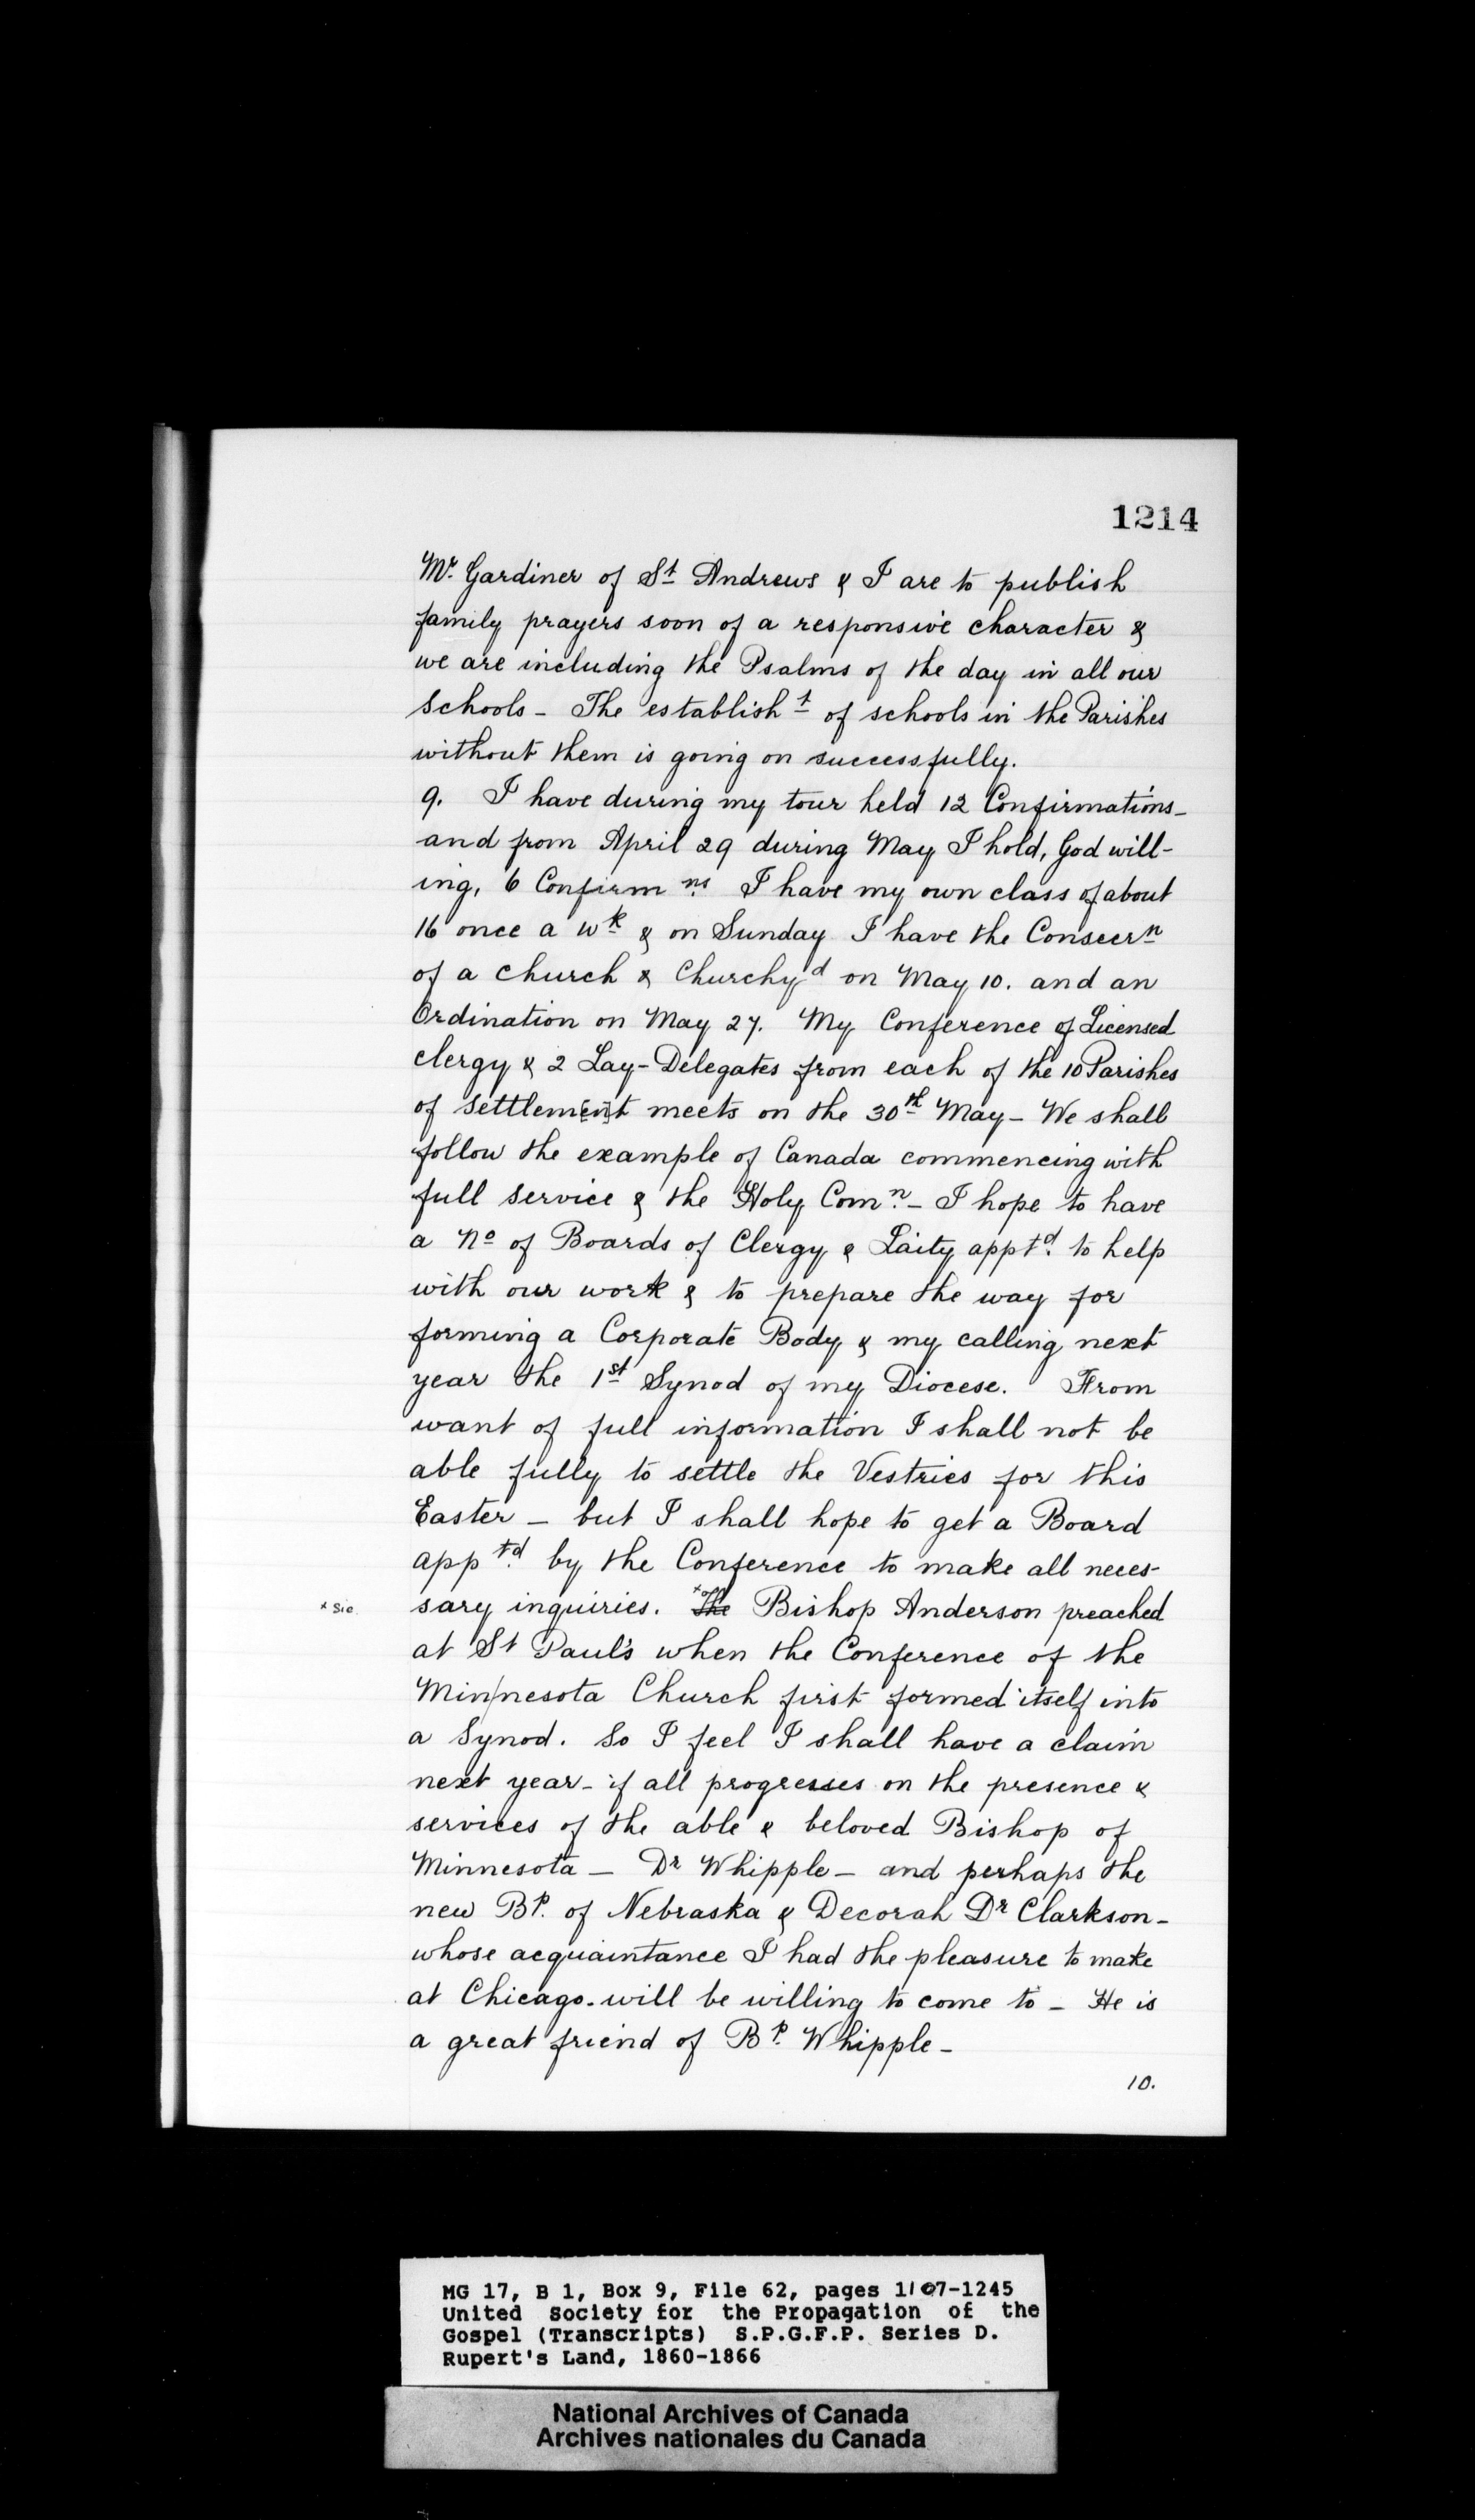 1214
Mr. Gardiner of St Andrews & I are to publish
family prayers soon of a responsive character &
we are including the Psalms of the day in all our
schools - The establisht of schools in the Parishes
without them is going on successfully.
9. I have during my tour held 12 Confirmations -
and from April 29 during May I hold, God will-
ing, 6 Confirmns I have my own class of about
16 once a wk & on Sunday I have the Consecrn
of a church & Churchyd on May 10. and an
Ordination on May 27. My Conference of Licensed
clergy & 2 Lay-Delegates from each of the 10 Parishes
of settlem[en]t meets on the 30th May - We shall
follow the example of Canada commencing with
full service & the Holy Comn. - I hope to have
a No of Boards of Clergy & Laity apptd. to help
with our work & to prepare the way for
forming a Corporate Body & my calling next
year the 1st Synod of my Diocese. From
want of full information I shall not be
able fully to settle the Vestries for this
Easter - but I shall hope to get a Board
apptd. by the Conference to make all neces-
x sic sary inquiries. The Bishop Anderson preached
at St Paul's when the Conference of the
Minnesota Church first formed itself into
a Synod. So I feel I shall have a claim
next year - if all progresses on the presence &
services of the able & beloved Bishop of
Minnesota - Dr Whipple - and perhaps the
new Bp. of Nebraska & Decorah Dr Clarkson -
whose acquaintance I had the pleasure to make
at Chicago. will be willing to come to - He is
a great friend of Bp. Whipple -
10.
MG 17, B 1, Box 9, File 62, pages 1107-1245
United Society for the Propagation of the
Gospel (Transcripts) S.P.G.F.P. Series D.
Rupert's Land, 1860-1866
National Archives of Canada
Archives nationales du Canada